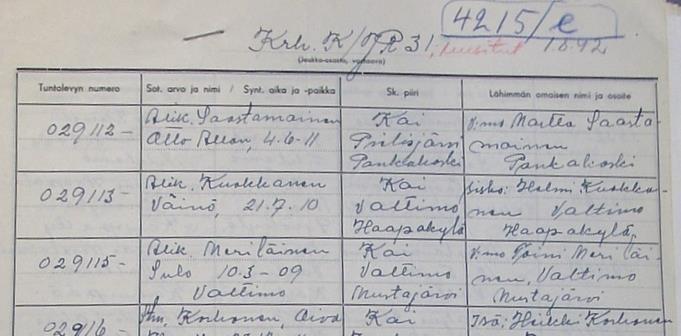 4215/e
Krh. K/JR 31, 18.92
(Joukko-osasto, vastaava)
Tuntolevyn numero Sot. arvo ja nimi / Synt. aika ja -paikka Sk. piiri Lähimmän omaisen nimi ja osoite
029112 - Alik. Saastamoinen Kai V:mo Martta Saasta-
Otto Allan, 4.6-11 Pielisjärvi moinen
Pankakoski Pankakoski
029113 - Alik. Kuokkanen Kai Sisko: Helmi Kuokka-
Väinö, 21.7.10 Valtimo nen Valtimo
Haapakylä Haapakylä
029115 - Alik. Meriläinen Kai V:mo Toini Meriläi-
Sulo 10.3-09 Valtimo nen, Valtimo
Valtimo Mustajärvi Mustajärvi
Stm. Korhonen, Kai Isä: Heikki Korhonen